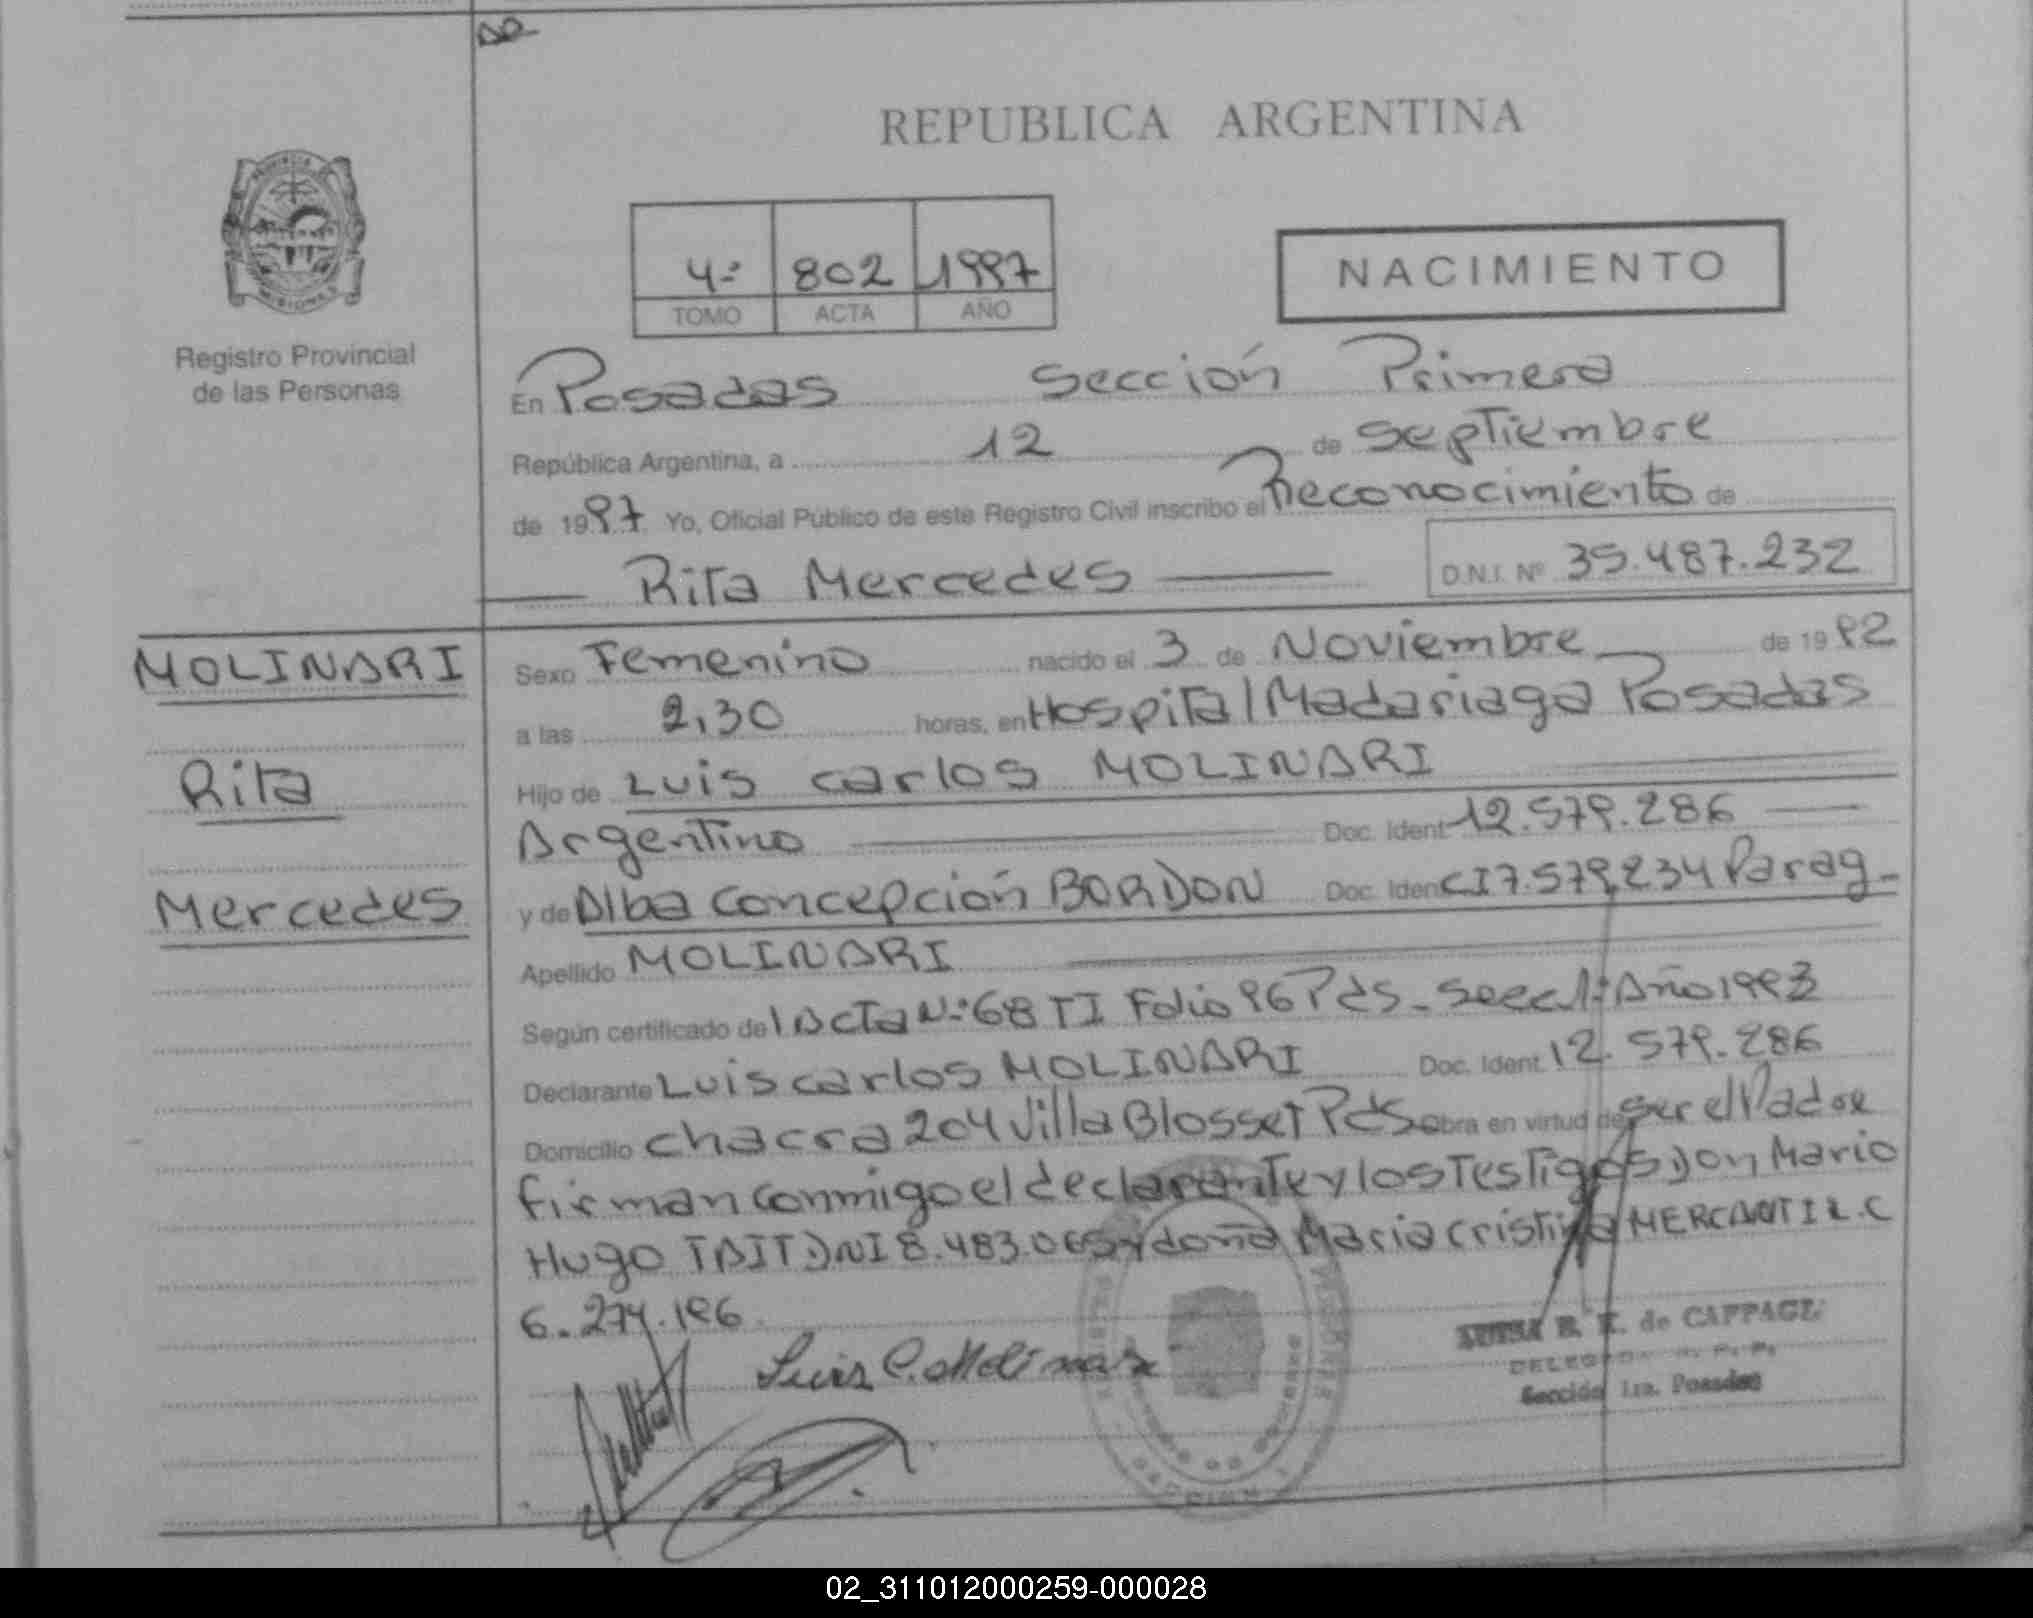 REPUBLICA ARGENTINA
Registro Provincial
de las Personas
4º 802 1997
TOMO ACTA AÑO
NACIMIENTO
En Posadas Sección Primera
República Argentina, a 12 de Septiembre
de 1997 Yo, Oficial Público de este Registro Civil inscribo el Reconocimiento de
Rita Mercedes D.N.I. Nº 35.487.232
MOLINARI
Rita
Mercedes
Sexo Femenino nacido el 3 de Noviembre de 1992
a las 2,30 horas, en Hospital Madariaga Posadas
Hijo de Luis Carlos MOLINARI
Argentino Doc. Ident 12.579.286
y de Alba Concepción BORDON Doc. Iden CI 7.579.234 Parag-
Apellido MOLINARI
Según certificado del Acta Nº 68 TI Folio 96 Pds- Secc 1ª Año 1993
Declarante Luis Carlos MOLINARI Doc. Ident. 12.579.286
Domicilio Chacra 204 Villa Blosset Pds Obra en virtud de ser el Padre
firman conmigo el declarante y los Testigos Don Mario
Hugo TAIT DNI 8.483.065 y doña Maria Cristina MERCANTI L.C
6.274.196
Luis C. Molinari
de CAPPAGLI
Sección 1ra. Posadas
02_311012000259-000028